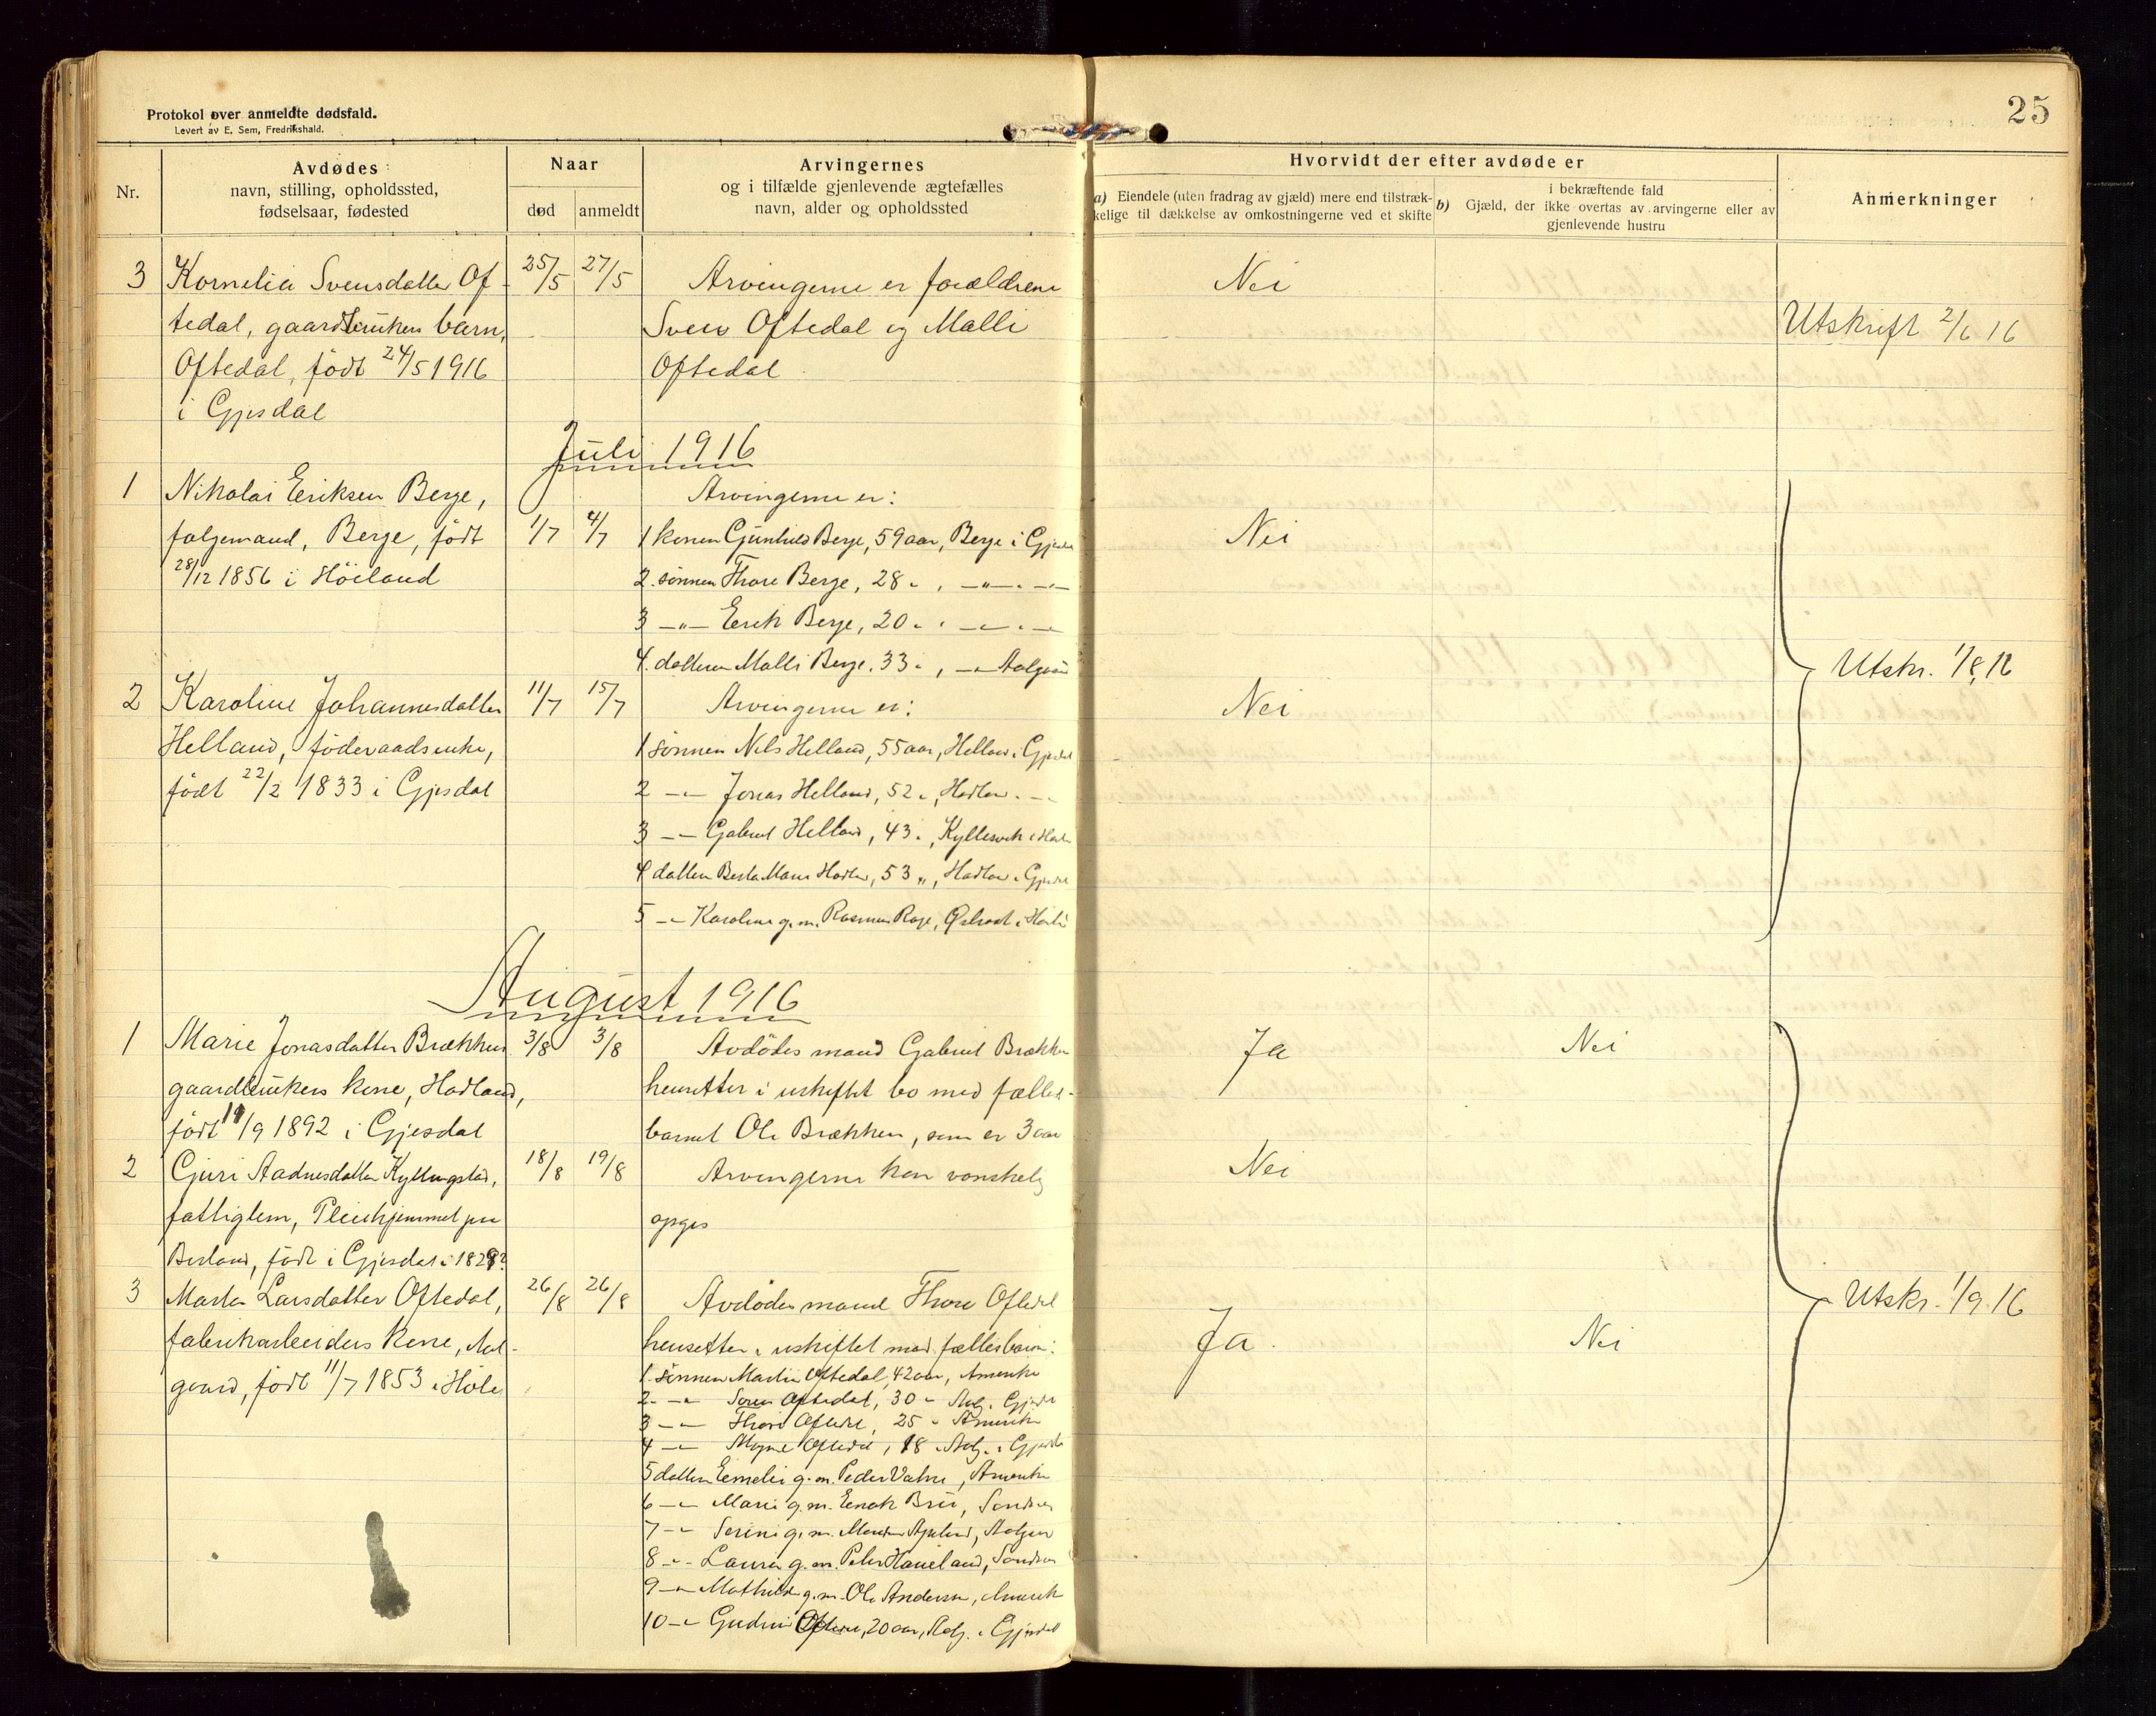 Protokol over anmeldte dødsfald.
Levert av E. Sem, Fredrikshald.
25
Nr.
Avdødes
navn, stilling, opholdssted,
fødselsaar, fødested
Naar
død
anmeldt
Arvingernes
og i tilfælde gjenlevende ægtefælles
navn, alder og opholdssted
Hvorvidt der efter avdøde er
a) Eiendele (uten fradrag av gjæld) mere end tilstræk-
kelige til dækkelse av omkostningerne ved et skifte
b) i bekræftende fald
Gjæld, der ikke overtas av arvingerne eller av
gjenlevende hustru
Anmerkninger
3 Kornelia Svensdatter Of- 25/5 27/5 Arvingerne er forældrene Nei
tedal, gaardbrukers barn, Sven Oftedal og Malli Utskrift 2/6 16
Oftedal, født 24/5 1916 Oftedal
i Gjesdal
Juli 1916
1 Nikolai Eriksen Berge, Arvingerne er:
folgemand, Berge, født 1/7 4/7 1 konen Gunhild Berge, 59 aar, Berge i Gjesdal Nei
28/12 1856 i Höiland 2. sönnen Thore Berge, 28 " , —"— . —"—
3 —"— Erik Berge, 20 " . —"— . —
4. datteren Malli Berge, 33 " , —" Aalgaard Utskr. 1/8 16
2 Karoline Johannesdatter 11/7 15/7 Arvingerne er: Nei
Helland, föderaadsenke, 1 sönnen Nils Helland, 55 aar, Helland i Gjesdal
født 22/2 1833 i Gjesdal 2 —"— Jonas Helland, 52 ", Hadland . —"—
3 —"— Gabriel Helland, 43 ",
4 datteren Berta Marie Hadland, 53 ", Hadland i Gjesdal
5 —"— Karoline g.m. Rasmus
August 1916
1 Marie Jonasdatter Brækken 3/8 3/8 Avdödes mand Gabriel Brækken Ja Nei
gaardbrukers kone, Hadland, hensitter i uskiftet bo med fælles-
født 19/9 1892 i Gjesdal barnet Ole Brækken, som er 3 aar
2 Guri Aadnesdatter Kyllingstad, 18/8 19/8 Arvingerne kan vanskelig Nei
fattiglem, Pleiehjemmet paa opgis
Berland, født i Gjesdal i 1829?
3 Marta Larsdatter Oftedal, 26/8 26/8 Avdödes mand Thore Oftedal Utskr. 1/9 16
fabrikarbeiders kone, Aal- hensitter i uskiftet med fællesbarn: Ja. Nei
gaard, født 11/7 1853 i Höle 1. sönnen Martin Oftedal, 42 aar, Amerika
2. —"— Sören Oftedal, 30 " Aalg. i Gjesdal
3 —"— Thore Oftedal, 25 " Amerika
4 —"— Oftedal, 18 " Aalg. i Gjesdal
5 datteren Emelie g.m. Peder Amerika
6 —"— Marie g.m. Enok Sandnes
7 —"— Serine g.m. Aalgaard
8 —"— Laura g.m. Peter Haueland, Sandnes
9 —"— Mathilde g.m. Ole Andersen, Amerika
10 —"— Gudrun Oftedal, 20 aar, Aalg. i Gjesdal